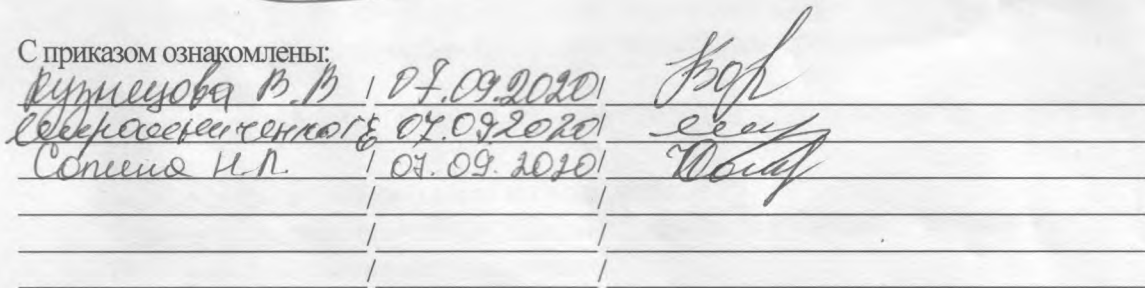 С приказом ознакомлены:
Кузнецова В.В / 07.09.2020/
07.09.2020/
Сопина Н.П. / 07.09.2020/
/ /
/ /
/ /